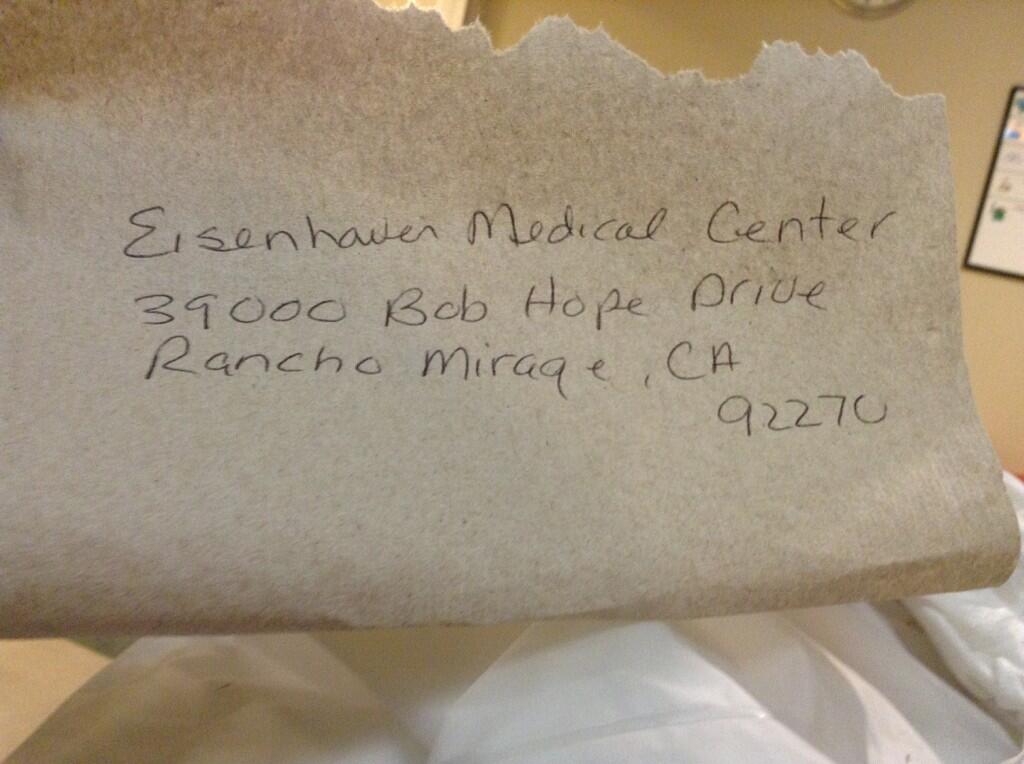 Eisenhaver Medical Center
39000 Bob Hope Drive
Rancho Mirage, CA
92270